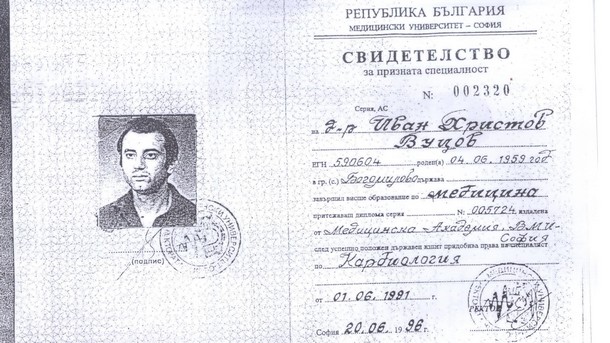 РЕПУБЛИКА БЪЛГАРИЯ
МЕДИЦИНСКИ УНИВЕРСИТЕТ – СОФИЯ
СВИДЕТЕЛСТВО
за призната специалност
N: 002320
Серия, АС
на д-р Иван Христов
Вуцов
ЕГН 590604 роден(а) 04.06.1959 год
в гр. (с.) Богомирово държава
завършил висше образование по медицина
притежаващ диплома серия N: 005724 издадена
от Медицинска Академия, ВМИ-
София
след успешно положен държавен изпит придобива права на специалист
по Кардиология
от 01.06.1991 г.
РЕКТОР
София 20.06 1996 г.
(подпис)